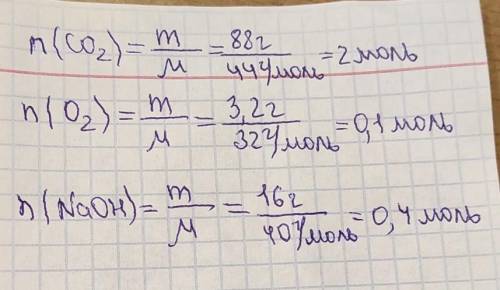 n(CO₂) = m/M = 88г/44г/моль = 2 моль
n(O₂) = m/M = 3,2г/32г/моль = 0,1 моль
n(NaOH) = m/M = 16г/40г/моль = 0,4 моль